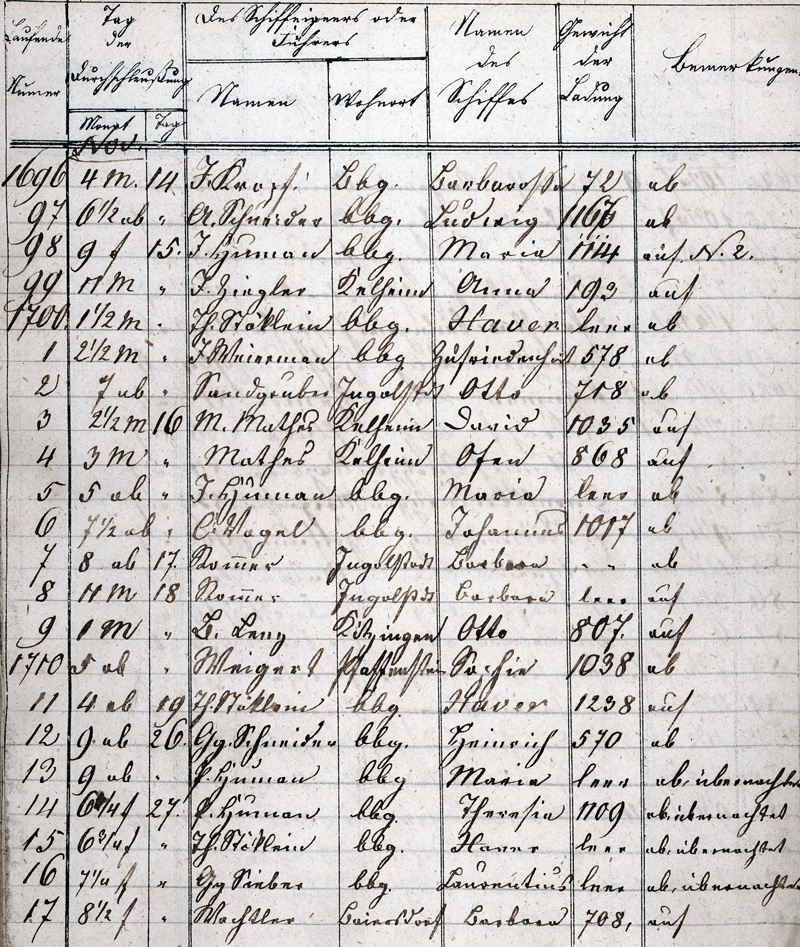 Laufende Numer
Tag der Durchschleußung
Monat Tag
des Schiffeigners oder Führers
Namen Wohnort
Namen des Schiffes
Gewicht der Ladung
Bemerkungen
Nov.
1696 4 M. 14 J. Kropf. Bbg. Barbarossa 72 ab
97 6 1/2 ab " A. Schneider bbg. Ludwig 1166 ab
98 9 f 15. J. Human bbg. Maria 1144 auf N. 2.
99 11 M " J. Ziegler Kelheim Anna 192 auf
1700. 1 1/2 M " Th. Stöklein bbg. Xaver leer ab
1 2 1/2 M " J Weierman bbg Zufriedenheit 578 ab
2 7 ab " Sandgruber Ingolstadt Otto 718 ab
3 2 1/2 M 16 M. Mathes Kelheim David 1035 auf
4 3 M " Mathes Kelheim Ofen 868 auf
5 5 ab " J. Human bbg. Maria leer ab
6 7 1/2 ab " C. Vogel bbg. Johannes 1017 ab
7 8 ab 17. Rom̄er Ingolstadt Barbara " " ab
8 11 M 18 Rom̄er Ingolstadt Barbara leer auf
9 1 M " L. Leny Kitzingen Otto 807. auf
1710 5 ab " Weigert Pfaffenstein Sophie 1038 ab
11 4 ab 19 Th. Stöklein bbg. Xaver 1238 auf
12 9 ab 26. Gg. Schneider bbg. Heinrich 570 ab
13 9 ab " P. Human bbg Maria leer ab, übernachtet
14 6 1/4 f 27. P. Human bbg. Theresia 1109 ab, übernachtet
15 6 3/4 f " Th. Stöklein bbg. Xaver leer ab, übernachtet
16 7 1/4 f " Gg Sieber bbg. Laurentius leer ab, übernachtet
17 8 1/2 f " Wachtler Baiersdorf Barbara 708, auf